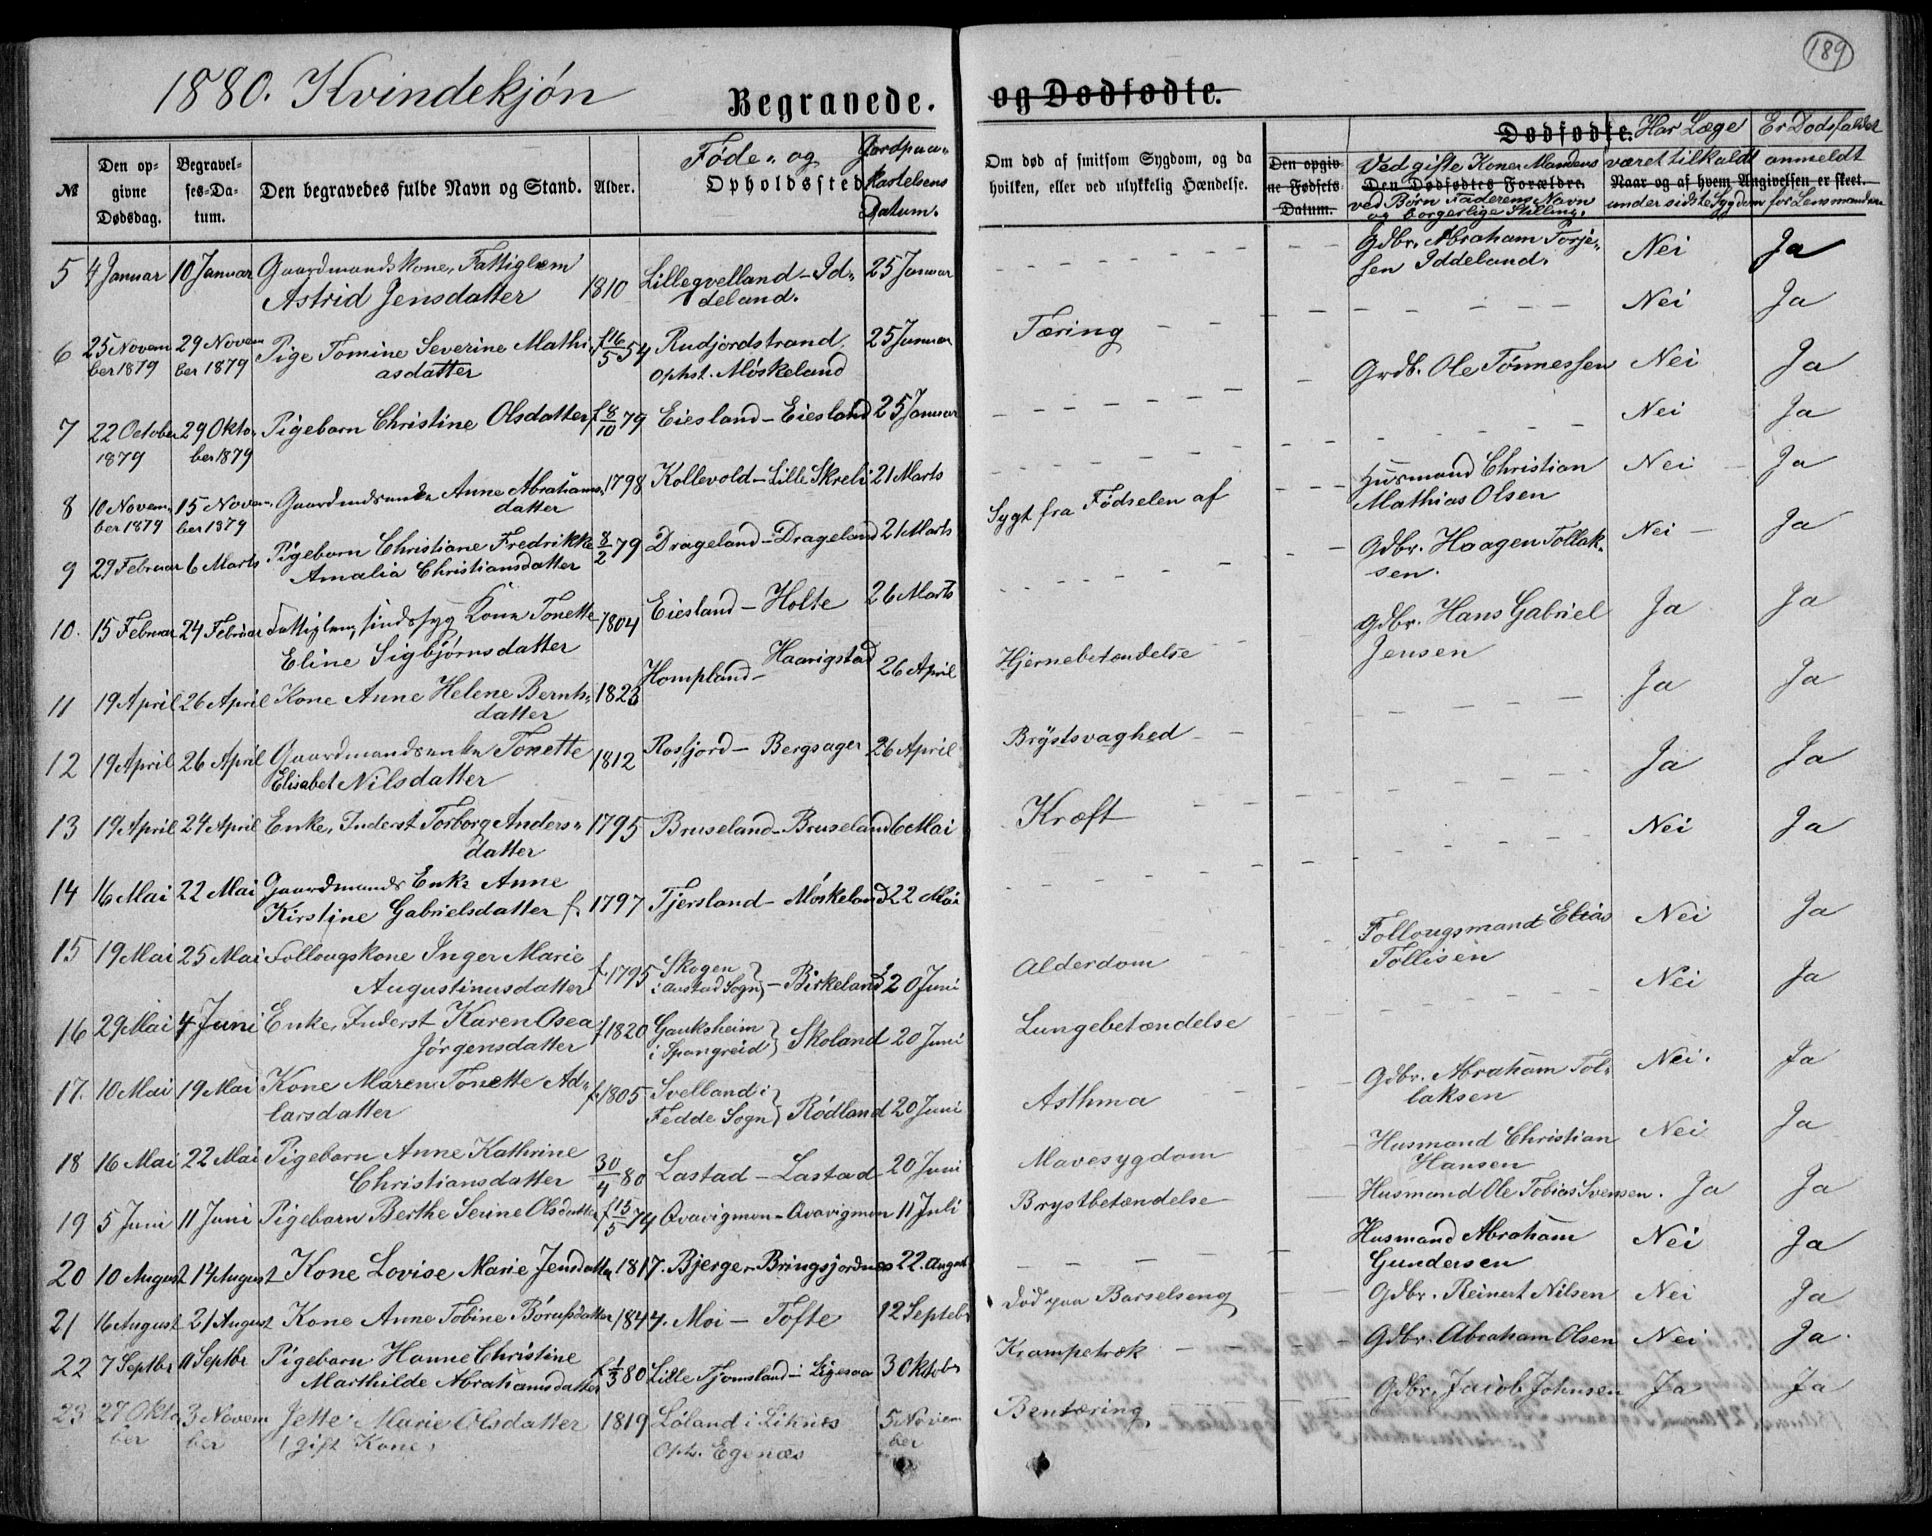 189
1880. Kvindekjön
Begravede.
og Dødfødte.
№
Den opgivne Dødsdag.
Begravelses-Datum.
Den begravedes fulde Navn og Stand.
Alder.
Føde- og Opholdssted
Jordpaakastelsens Datum.
Om død af smitsom Sygdom, og da hvilken, eller ved ulykkelig Hændelse.
Den opgivne Fødsels-Datum.
Dødfødte.
Den Dødfødtes Forældre.
Ved gifte Koner Mandens
ved Børn Faderens Navn
og borgerlige Stilling.
Naar og af hvem Angivelsen er skeet.
Har Læge været tilkaldt under sidste Sygdom
Er Dødsfaldet anmeldt for Lensmanden
5 4 Januar 10 Januar Gaardmandskone, Fattiglem
Astrid Jensdatter 1810 Lillegvelland - Iddeland. 25 Januar
Gdbr. Abraham Torjesen Iddeland. Nei Ja
6 25 November 1879 29 November 1879 Pige Tomine Severine Mathiasdatter f 16/5 54 Rudjordstrand, Ophst. Møskeland 25 Januar
Tæring Nei Ja
7 22 October 1879 29 Oktober 1879 Pigebarn Christine Olsdatter f 8/10 79 Eiesland - Eiesland 25 Januar
Grdb. Ole Tønnessen Nei Ja
8 10 November 1879 15 November 1879 Gaardmdsenke Anne Abrahamsdatter 1798 Kollevold - Lille Skreli 21 Marts
Nei Ja
9 29 Februar 6 Marts Pigebarn Christiane Fredrikke
Amalia Christiansdatter 8/2 79 Drageland - Drageland 21 Marts
Sygt fra Fødselen af Husmand Christian
Mathias Olsen Nei Ja
10. 15 Februar 24 Februar Fattiglem, sindssyg Kone Tonette
Eline Sigbjørnsdatter 1804 Eiesland - Holte 26 Marts
Gdbr. Haagen Tollaksen. Nei Ja
11 19 April 26 April Kone Anne Helene Berntsdatter 1823 Hompland - Haarigstad 26 April
Hjernebetændelse Gdbr. Hans Gabriel
Jensen Ja Ja
12 19 April 26 April Gaardmandsenke Tonette
Elisabet Nilsdatter 1812 Rosfjord - Bergsager 26 April
Brÿstsvaghed Ja Ja
13 19 April 24 April Enke, Inderst Torborg Andersdatter 1795 Bruseland - Bruseland 6 Mai
Kræft Ja Ja
14 16 Mai 22 Mai Gaardmands Enke Anne
Kirstine Gabrielsdatter f. 1797 Tjersland - Møskeland 22 Mai
Nei Ja
15 19 Mai 25 Mai Follougskone Inger Marie
Augustinusdatter f 1795 Skogen i Austad Sogn - Birkeland 20 Juni
Alderdom Follougsmand Elias
Tollisen Nei Ja
16 29 Mai 4 Juni Enke, Inderst Karen Osea
Jørgensdatter f 1820 Gauksheim i Spangreid Skoland 20 Juni
Lungebetændelse Nei Ja
17. 10 Mai 19 Mai Kone Maren Tonette Adlarsdatter f. 1805 Svelland i Fedde Sogn Rødland 20 Juni
Asthma Gdbr. Abraham Tollaksen Nei. Ja
18 16 Mai 22 Mai Pigebarn Anne Kathrine
Christiansdatter 30/4 80 Lastad - Lastad 20 Juni
Mavesygdom Husmand Christian
Hansen Nei Ja
19 5 Juni 11 Juni Pigebarn Berthe Serine Olsdatter f 15/5 74 Qvavigmon - Qvavigmon 11 Juli
Brystbetændelse Husmand Ole Tobias Svensen. Ja Ja
20 10 August 14 August Kone Lovise Marie Jensdatter 1817. Bjerge - Bringsjordnes 22. August
Husmand Abraham
Gundersen Nei Ja
21 16 August 21 August Kone Anne Tobine Börufsdatter 1844. Moi - Tofte 12 Septebr
Død paa Barselseng Gdbr. Reinert Nilsen Nei Ja
22 7 Septbr 11 Septbr Pigebarn Hanne Christine
Marthilde Abrahamsdatter f 1/3 80 Lille Tjomsland - Eigesaa 3 Oktob
Krampetræk Gdbr. Abraham Olsen Nei Ja.
23 27 Oktober 3 November Jette Marie Olsdatter
(gift Kone) 1819 Løland i Liknes
Oph. Egenæs 5 November
Bentæring Gdbr. Jacob Johnsen Ja Ja